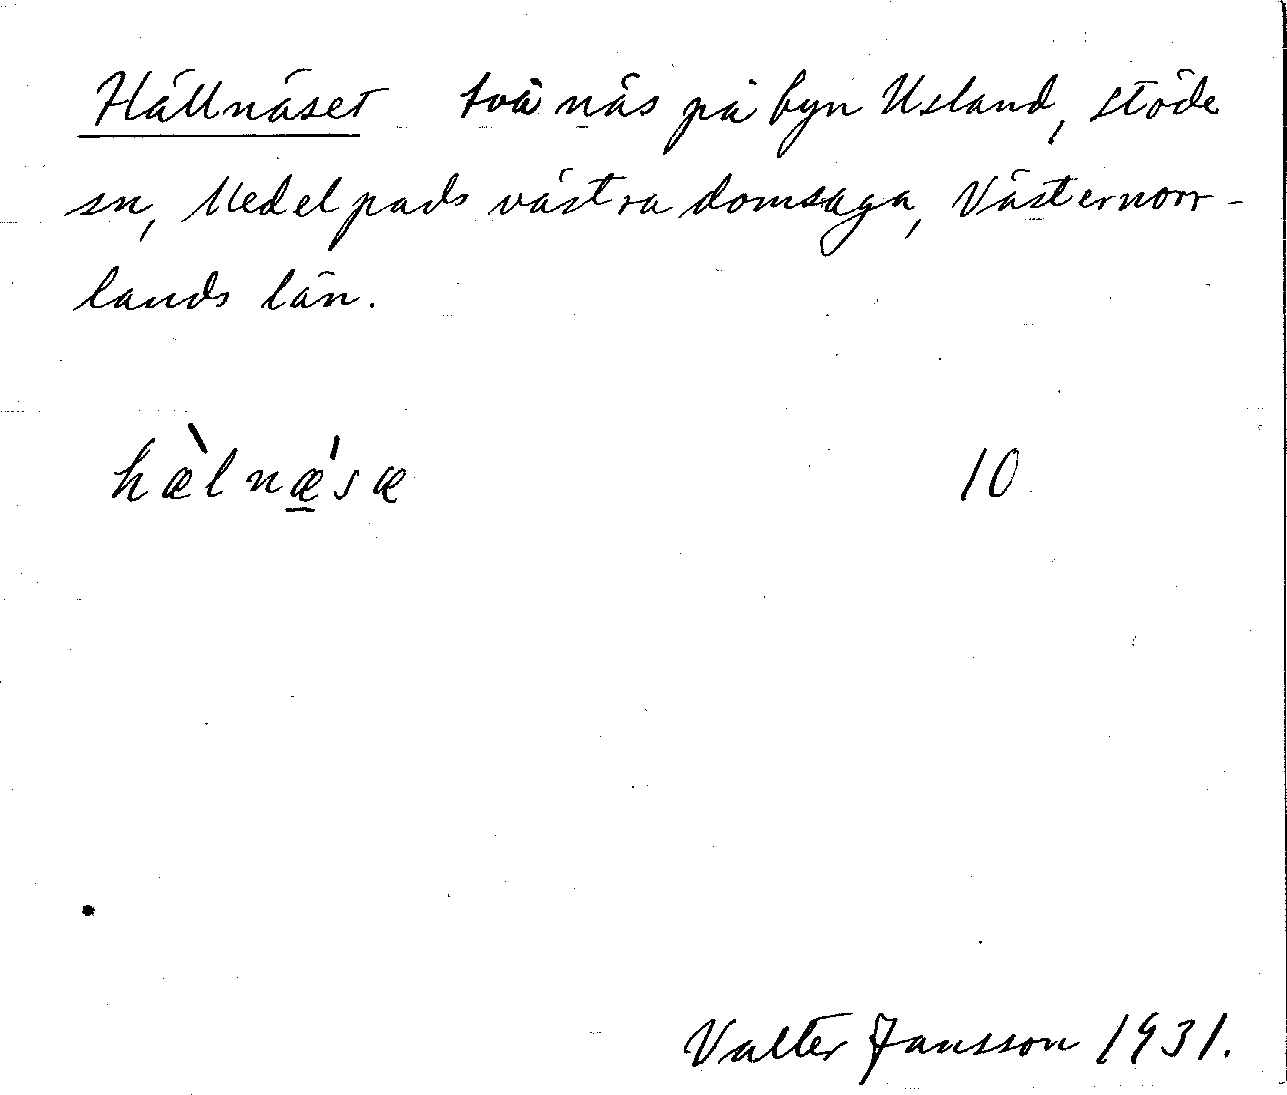 Hällnäset två näs på byn Usland, Stöde
sn, Medelpads västra domsaga, Västernorr-
lands län.
hæ̀lnǽ̲sæ 10
Valter Jansson 1931.